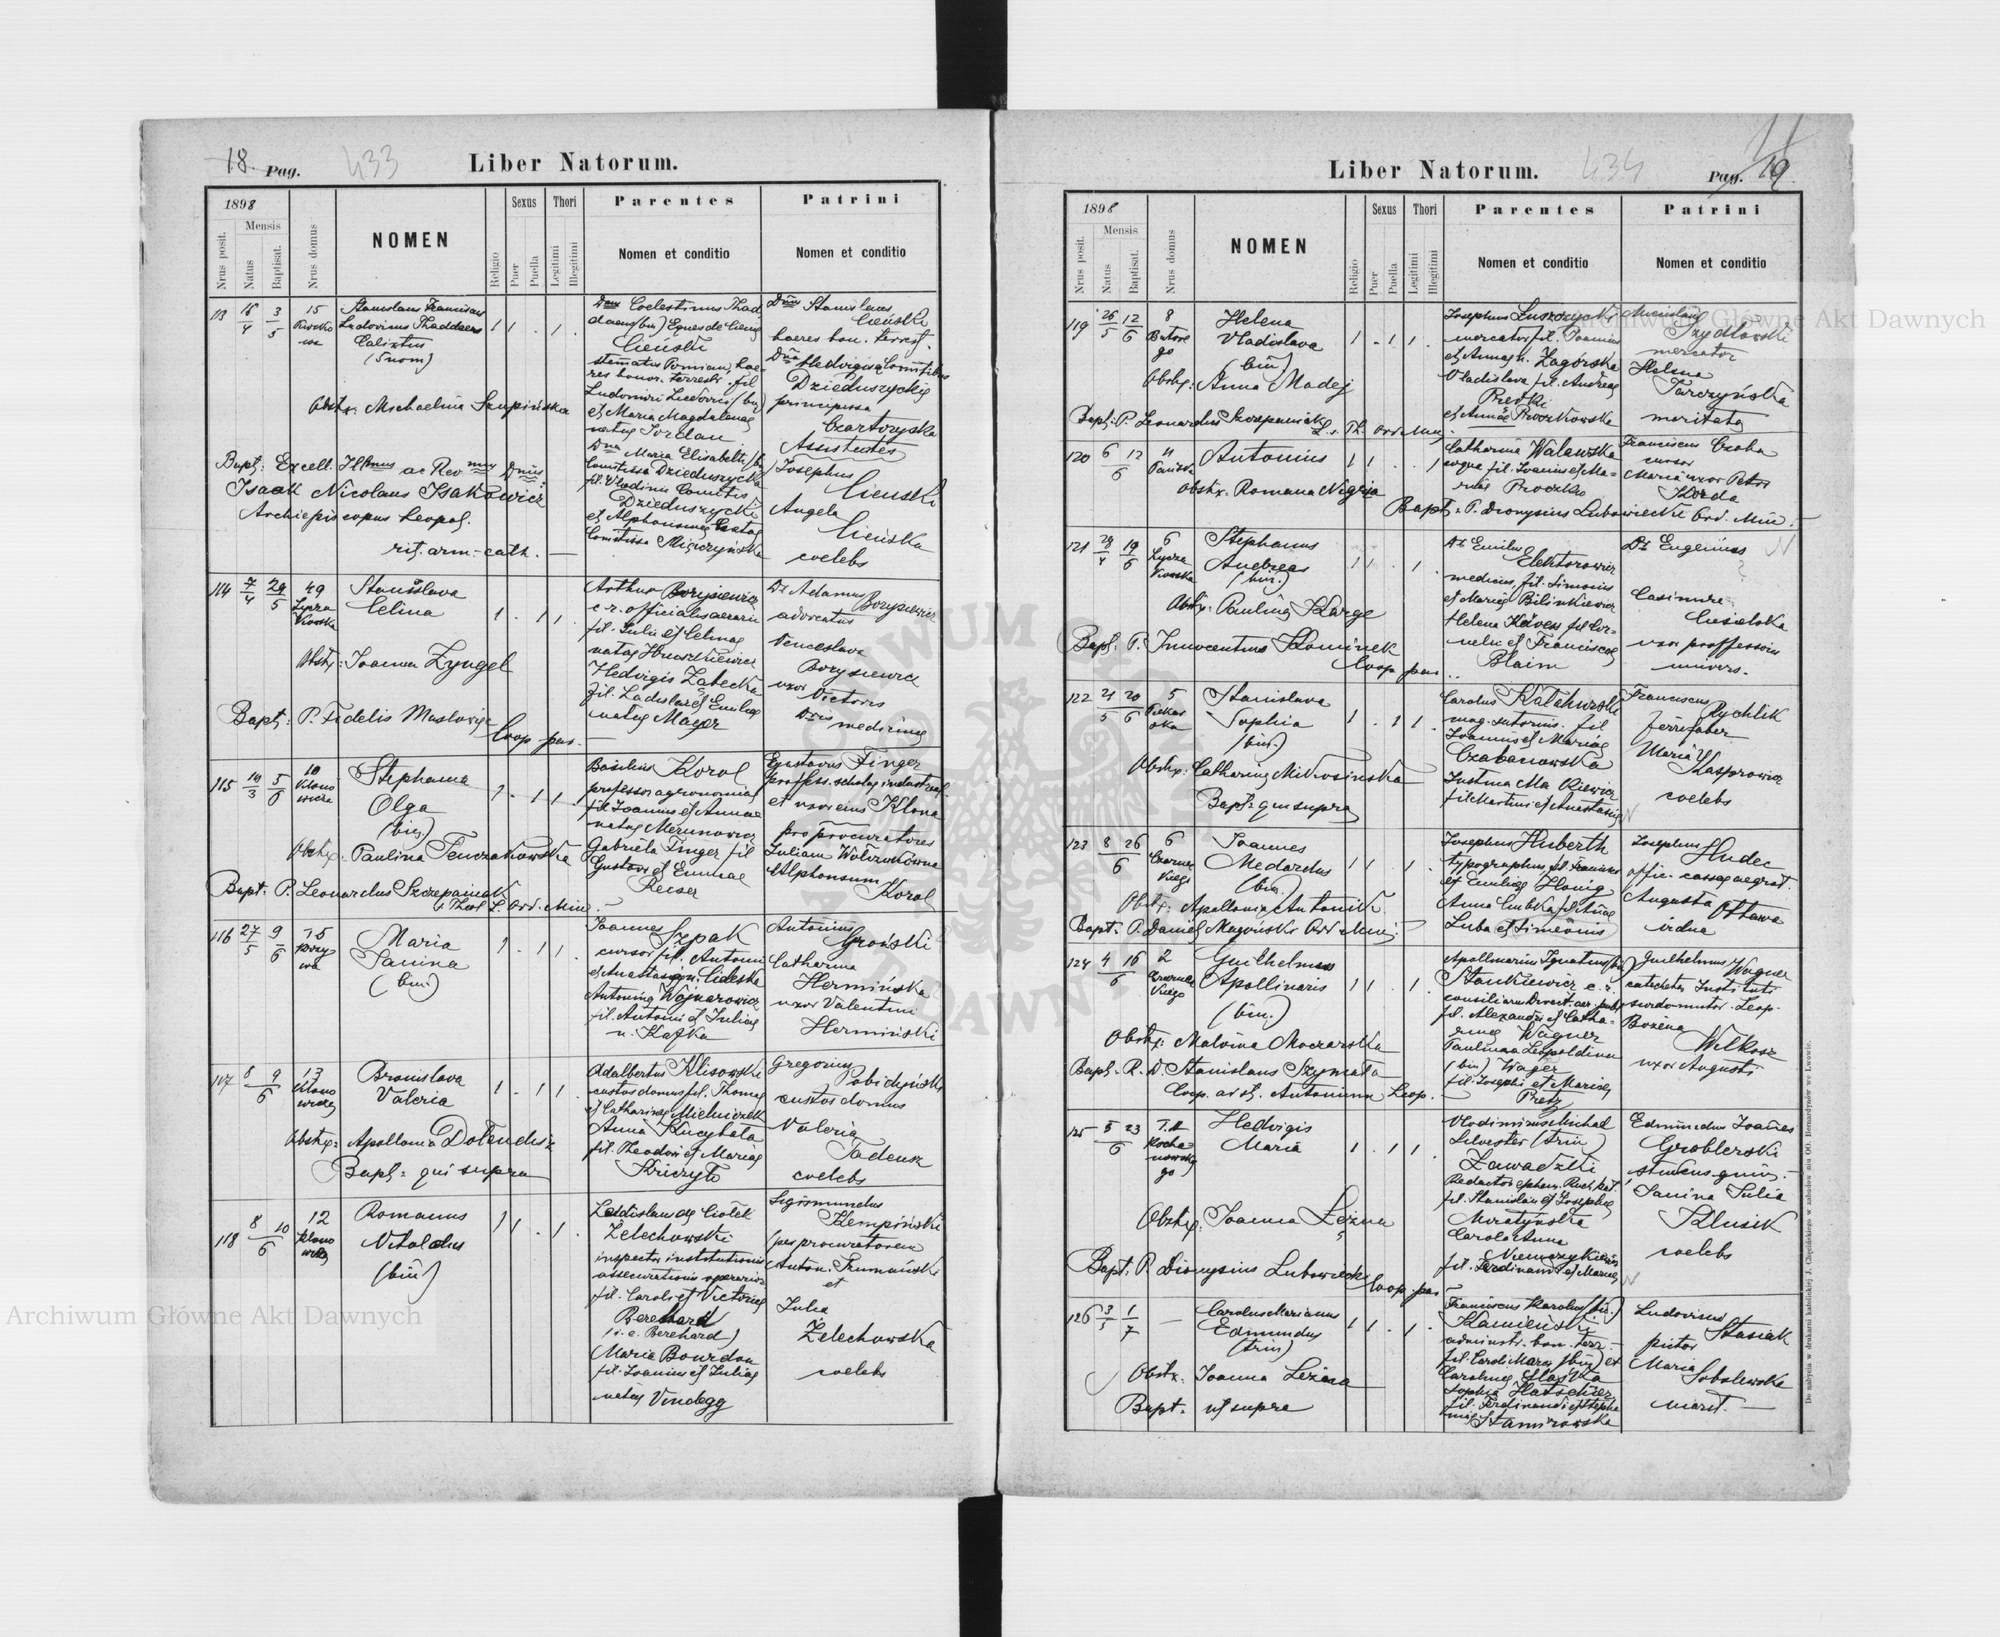 18. Pag. 433
Liber Natorum.
1898
Nrus posit.
Mensis
Natus
Baptisat.
Nrus domus
NOMEN
Religio
Sexus
Puer
Puella
Thori
Legitimi
Illegitimi
Parentes
Nomen et conditio
Patrini
Nomen et conditio
113 16/4 3/5 15
Stanislaus Franciscus
Ludovicus Thaddaeus
Calixtus
(5 nom)
Obstx. Michaelina Szupińska
Bapt: Excell. Illmus ac Revmus Dnus:
Isaak Nicolaus Isakowicz
Archiepiscopus Leopol.
rit. arm.-cath.
Dnus Coelestinus Thad-
daeus (bin) Eques de Cieng
Cieński
stematis Pomian, hae-
res honor. terrestr. fil
Ludomiri
et Maria Magdalenae
natae Jordan
Dna Maria Elisabeth (bin)
Comitissa Dzieduszycka
fil. Vladimi Comitis
Dzieduszycki
et Alphonsinae
Comitissa Miączyńska
Dnus Stanislaus
Cieński
haeres bon. terrest.
Dna Hedvigis a Comitibus
Dzieduszyckie
principissa
Czartoryska
Assistentes
Josephus
Cieński
Angela
Cieńska
coelebs
114 7/4 29/5 49
Łycza
kowska
Stanislava
Celina
1 . 1 1 .
Obstx: Joanna Zyngel
Bapt: P. Fidelis
Coop. par.
Arthur Borysiewicz
c. r. officialis aerarii
fil. Julii et Celinae
natae Hnoszkiewicz
Hedvigis Żabecka
fil. Ladislai et Emiliae
natae Mayer
Dr Adamus
Borysiewicz
advocatus
Venceslava
Borysiewicz
uxor Victoris
Dris medicinae
115 19/3 5/6 10
Klono
wicza
Stephania
Olga
(bin.)
1 . 1 1 .
Obstx. Paulina Tenczakowska
Bapt. P. Leonardus Szczepaniak
S. Theol. L. Ord. Min.
Basilius Korol
professor agronomiae
fil Joannis et Annae
natae Merunowicz
Gabriela Finger fil
Gustavi et Emmae
Reiser
Gustavus Finger
profess. scholae industrial.
et uxor eius Ilona
pro procuratores
Juliam Wołczukówna
Alphonsum
Korol
116 27/5 9/6 15
Maria
Janina
(bin.)
1 . 1 1
Joannes
Szpak
cursor fil. Antoni
et Anastasiae n. Cideska
Antonina Wojnarowicz
fil. Antoni et Juliae
n. Kafka
Antonius
Groński
Catharina
Hermińska
uxor Valentini
Hermiński
117 8 9/6 13
Klono
wicza
Bronislava
Valeria
1 . 1 1 .
Obstx: Apollonia Dołendisz
Bapt: qui supra
Adalbertus Klisowski
custos domus fil. Thomae
et Catharinae Mielniczek
Anna Kucybała
fil. Theodori et Mariae
Kriczyło
Gregorius
Pobidyński
custos domus
Valeria
Tadeusz
coelebs
118 8 10/6 12
Klono
wicza
Romanus
Vitoldus
(bin)
1 1 . 1 .
Ladislaus de Ciołek
Żelechowski
inspector institutionis
assecurationis operarior.
fil. Caroli et Victoriae
Berehard
(i. e. Berehard)
Maria Bourdon
fil. Joannis et Juliae
natae Vindegg
Sigismundus
Klempiński
per procuratorem
Anton. Szumański
et
Julia
Żelechowska
coelebs
Liber Natorum.
434
Pag. 19
1898
Nrus posit.
Mensis
Natus
Baptisat.
Nrus domus
NOMEN
Religio
Sexus
Puer
Puella
Thori
Legitimi
Illegitimi
Parentes
Nomen et conditio
Patrini
Nomen et conditio
119 26/5 12/6 8
Batore
go
Helena
Vladislava
(bin)
1 . 1 1 .
Obstx: Anna Madej
Bapt: P. Leonardus Szczepaniak
S. Th. Ord. Min.
Josephus Łuszczycki
mercator fil. Joannis
et Annae n. Zagórska
Vladislava fil. Andreae
Precki
et Annae Proczkowska
Mieislaus
Szydłowski
mercator
Helena
Tarczyńska
maritata
120 6 12/6 11
Pańska
Antonius
1 1 . . 1
Obstx. Romana Nigria
Bapt: P. Dionysius Lubowiecki Ord. Min.
Catharina Walawska
coqua fil. Joannis et Ma-
riae Proczko
Franciscus Czaba
cursor
Maria uxor Petri
Korda
121 29/4 19/6 6
Łycza
kowska
Stephanus
Andreas
(bin.)
1 1 . 1 .
Obstx: Paulina Karge
Bapt: P. Innocentius Kominek
Coop par.
Dr Emilus
Elektorowicz
medicus, fil. Simonis
et Mariae Bilinkiewicz
Helena Kävess fil Cor-
nelii et Franciscae
Blaim
Dr Eugenius
?
Casimira
Ciesielska
uxor proffessoris
univers.
122 21/5 20/6 5
Piekar
ska
Stanislava
Sophia
(bin.)
1 . 1 1
Obstx: Catharina Mikosińska
Bapt: qui supra
Carolus Kalahurski
mag. sutorius. fil
Joannis et Mariae
Czabanowska
Justina Ma kiewicz
fil Martini et Anastasiae
Franciscus
Rychlik
ferrifaber
Maria
Kasprowicz
coelebs
123 8 26/6 6
Czarnec
kiego
Joannes
Medardus
(bin.)
1 1 . 1 .
Obstx: Apollonia Antonik
Bapt. P. Daniel Magoński Ord. Min:
Josephus Huberth
typographus, fil. Francisci
et Emiliae Honig
Anna
Luba et Simeonis
Josephus Hudec
offic. cassae aegrot.
Augusta Ottawa
vidua
124 4 16/6 2
Czarnec
kiego
Guilhelmus
Apollinaris
(bin.)
1 1 . 1
Obstx: Malvina Moczarska
Bapt. R. D. Stanislaus Szymala
Coop. ad St. Antonium Leop.
Apollinarius Ignatius (bin)
Stankiewicz c. r.
consiliarius Direct. aer. publ.
fil. Alexandri et Catha-
rinae Wagner
Paulina Leopoldina
(bin) Wajer
fil. Josephi et Mariae
Pretz
Guilhelmus Wagner
catecheta Instituti
surdo-mutor. Leop.
Bożena
Wilkosz
uxor Augusti
125 5 23/6
Kocha
nowskie
go
Hedvigis
Maria
1 . 1 1 .
Obstx: Joanna Leżna
Bapt: P. Dionysius Lubowiecki
Coop. par
Vlodimirus Michael
Silvester (trin)
Zawadzki
Redactor ephem. Ruch kat.
fil. Stanislai et Josephae
Miratyńska
Carola Anna
Niemczykiewicz
fil. Ferdinandi et Mariae
Edmundus Joannes
Groblerski
studens gimn.
Janina Julia
Klusik
coelebs
126 3/5 1/7 —
Carolus Marianus
Edmundus
(trin)
1 1 . 1 .
Obstx. Joanna Leżna
Bapt. ut supra
Franciscus Karolus (bin.)
Kamieński
administr. bon. terr.
fil. Caroli Marci (bin) et
Carolinae Hlaska
Sophia Hatscher
fil. Ferdinandi et Stepha
niae Stamirowska
Ludovicus
Stasiak
pictor
Maria
Sobolewska
marit.
Do nabycia w drukarni katolickiej J. Chęcińskiego w zabudow niu OO. Bernardynów we Lwowie.
Archiwum Główne Akt Dawnych
Archiwum Główne Akt Dawnych
ARCHIWUM GŁÓWNE AKT DAWNYCH